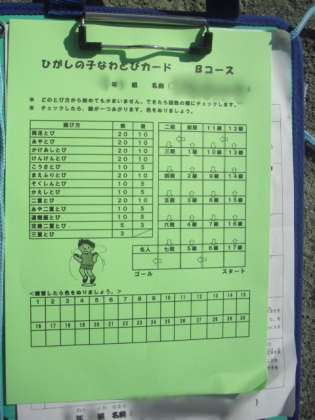 ひがしの子なわとびカード Bコース
年 組 名前
※ どのとび方から始めてもかまいません。できたら回数の欄にチェックします。
※ チェックしたら、級が一つあがります。色をぬりましょう。
跳び方
両足とび 20 10
あやとび 20 10
かけあしとび 20 10
けんけんとび 20 10
こうさとび 10 5
まえふりとび 20 10
そくしんとび 10 5
かえしとび 10 5
二重とび 20 10
あや二重とび 10 5
交差二重とび 5 3
三重とび 3
二段 初段 11級 12級
三段 1級 10級 13級
四段 2級 9級 14級
五段 3級 8級 15級
六段 4級 7級 16級
名人 七段 5級 6級 17級
ゴール スタート
<練習したら色をぬりましょう。>
1 2 3 4 5 6 7 8 9 10 11 12 13 14 15
16 17 18 19 20 21 22 23 24 25 26 27 28 29 30
年 組 名前